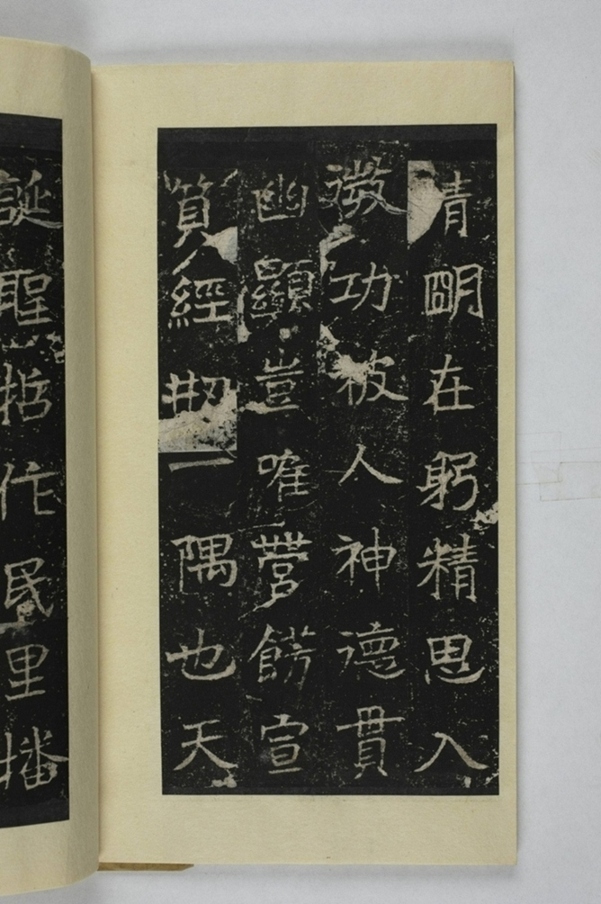 清明在躬精思入
微功被人神德貫
幽顯豈唯營餝宣
質經刱一隅也天
誕聖哲作民里播